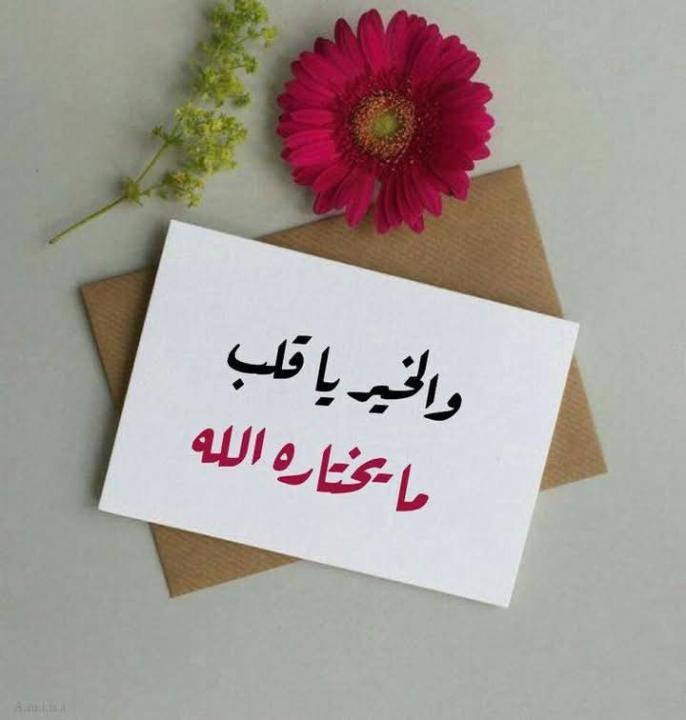 والخير يا قلب
ما يختاره الله
A.m.i.n.a